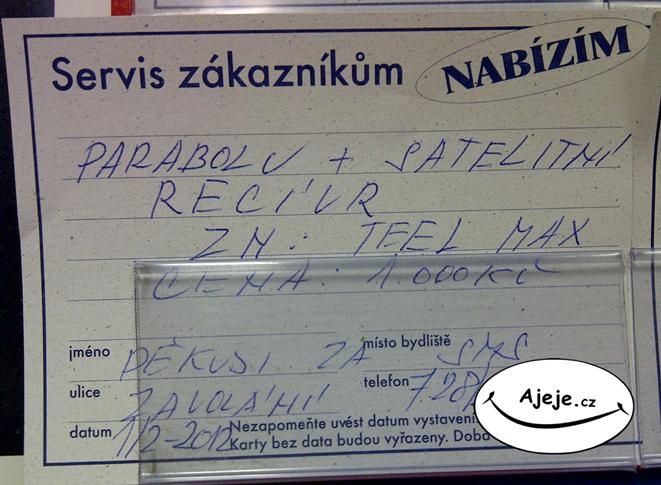 Servis zákazníkům
NABÍZÍM
PARABOLU + SATELITNÍ
RECÍVR
ZN: TEEL MAX
CENA: 1.000 KČ
jméno DĚKUJI ZA
místo bydliště SMS
ulice ZAVOLÁNÍ
telefon 728
datum 1/2-2012
Nezapomeňte uvést datum vystavení
Karty bez data budou vyřazeny. Doba
Ajeje.cz